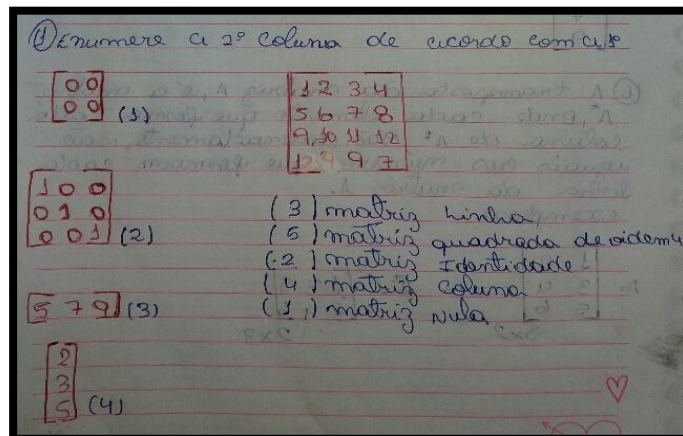 ① Enumere a 2º coluna de acordo com a 1º
0 0
0 0 (1)
1 2 3 4
5 6 7 8
9 10 11 12
12 9 9 7
1 0 0
0 1 0
0 0 1 (2)
5 7 9 (3)
2
3
5 (4)
(3) matriz Linha
(5) matriz quadrada de oidem 4
(2) matriz Identidade
(4) matriz coluna
(1) matriz Nula